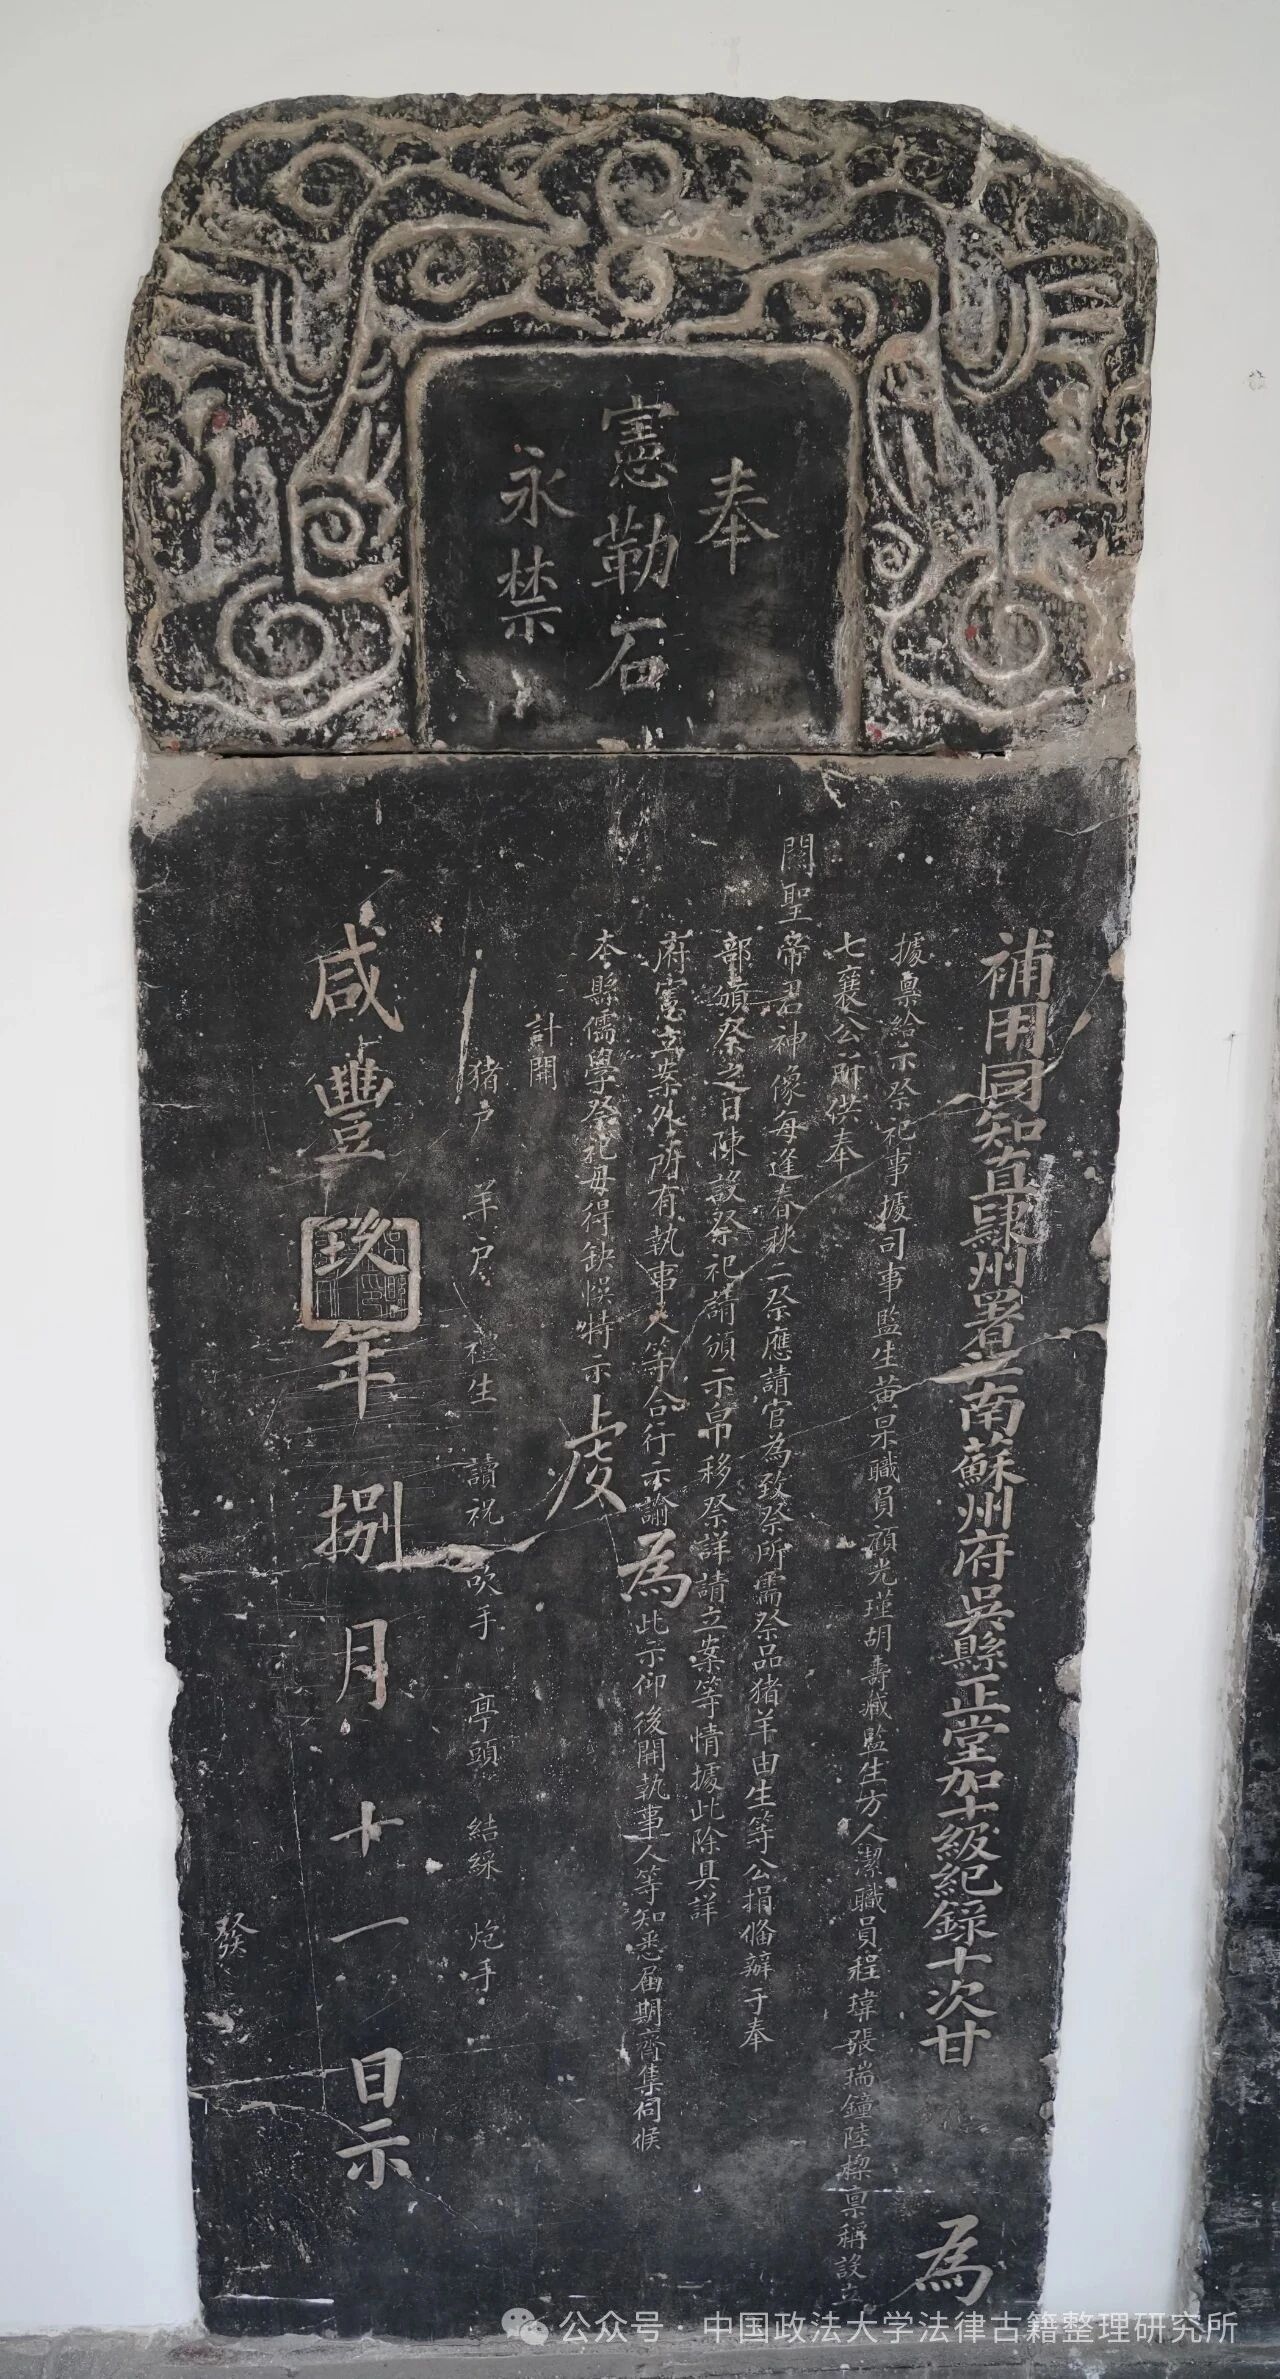 奉
憲勒石
永禁
補用同知直隸州署江南蘇州府吳縣正堂加十級紀錄十次甘 為
據稟給示祭祀事據司事監生黃杲職員顧光瑾胡壽臧監生方人潔職員程瑋張瑞鐘陸樑稟稱設立
七襄公所供奉
關聖帝君神像每逢春秋二祭應請官為致祭所需祭品猪羊由生等公捐俻辦于奉
部頒祭之日陳設祭祀請頒示帛移祭詳請立案等情據此除具詳
府憲立案外所有執事人等合行示諭為此示仰後開執事人等知悉届期齊集伺候
本縣儒學祭祀毋得缺悞特示
計開
猪户 羊户 禮生 讀祝 吹手 亭頭 結綵 炮手
咸豐玖年捌月十一日示
發
公众号 · 中国政法大学法律古籍整理研究所